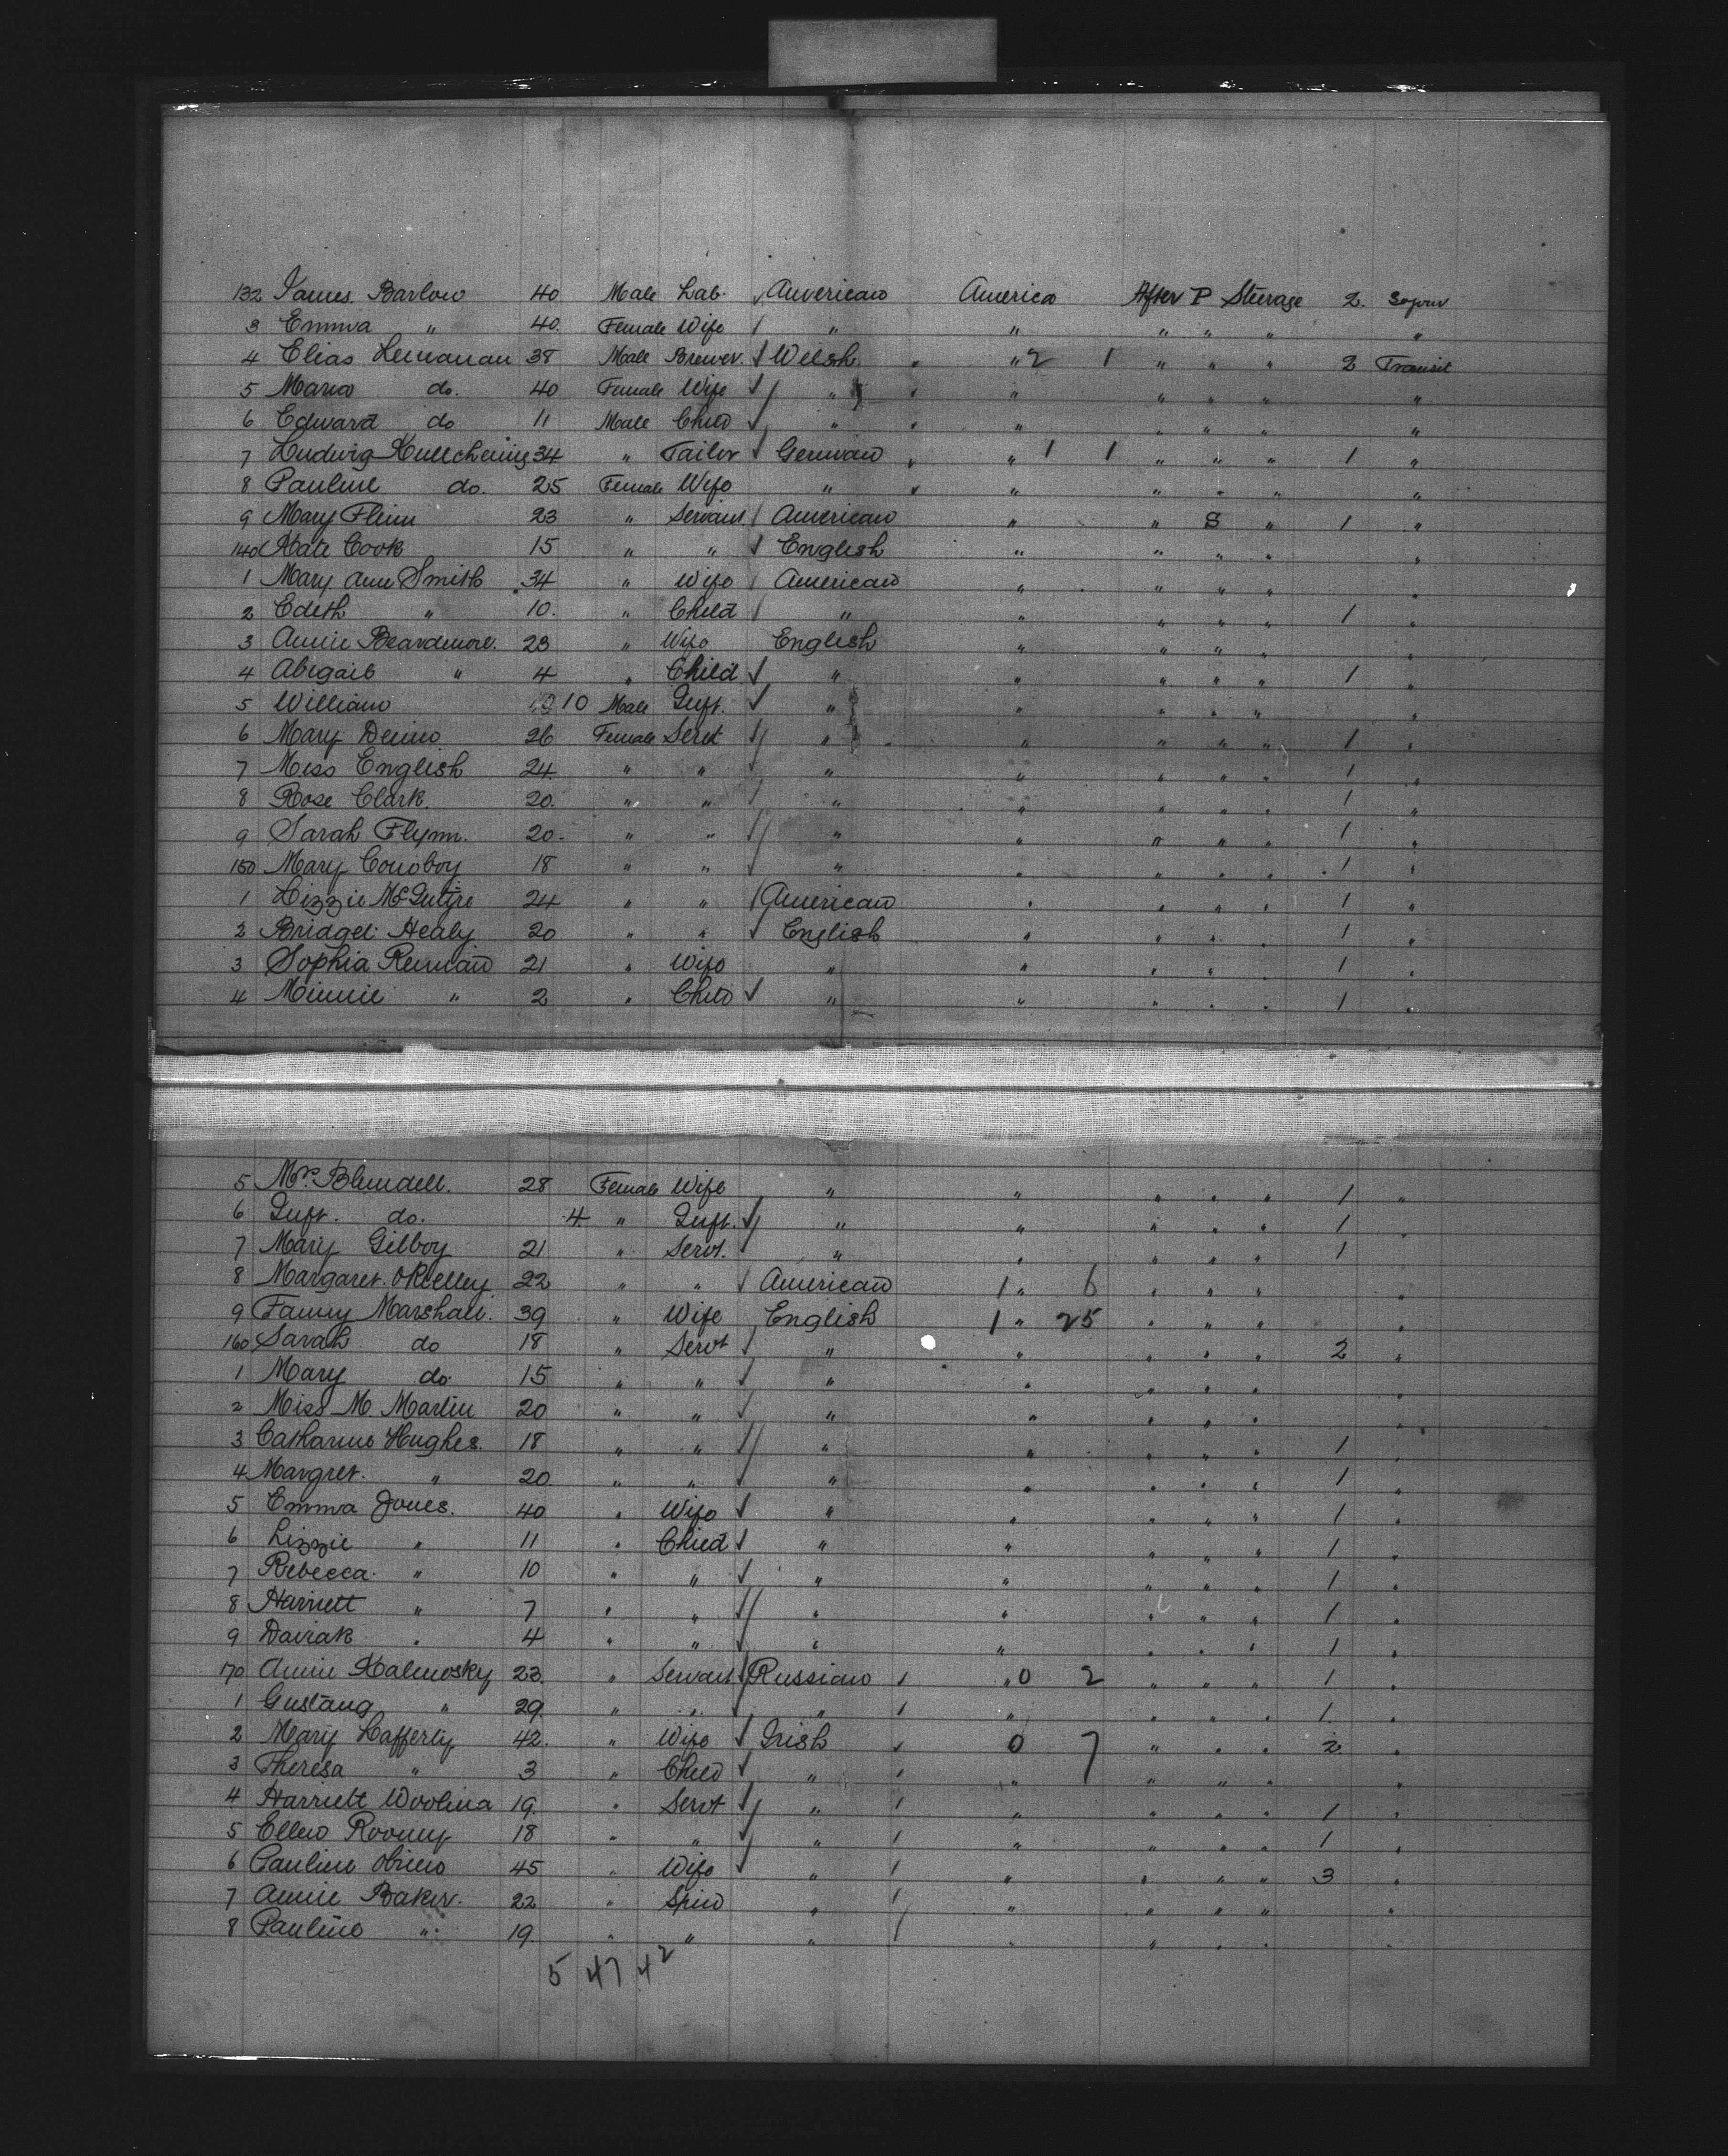 132 James Barlow 40 Male Lab. American America After P Steerage 2. Sojour
3 Emma " 40. Female Wife " " " " " "
4 Elias Lemanan 38 Male Brewer. Welsh " 2 1 " " " 2 Transit
5 Maria do. 40 Female Wife " " " " " "
6 Edward do 11 Male Child " " " " " "
7 Ludwig 34 " Tailor German " 1 1 " " " 1 "
8 Pauline do. 25 Female Wife " " " " " "
9 Mary Flinn 23 " Servant American " " S " 1 "
140 Kate Cook 15 " " English " " " " "
1 Mary Ann Smith 34 " Wife American " " " " "
2 Edith " 10. " Child " " " " " 1 "
3 Annie Beardmore. 23 " Wife English " " " " "
4 Abigail " 4 " Child " " " " " 1 "
5 William 10 Male Inft. " " " " " "
6 Mary Denno 26 Female Servt " " " " " 1 "
7 Miss English 24. " " " " " " " 1 "
8 Rose Clark. 20. " " " " " " " 1 "
9 Sarah Flynn. 20. " " " " " " " 1 "
150 Mary Conoboy 18 " " " " " " " 1 "
1 Lizzie McIntyre 24 " " American " " " " 1 "
2 Bridget Healy 20 " " English " " " " 1 "
3 Sophia 21 " Wife " " " " " 1 "
4 Minnie " 2 " Child " " " " " 1 "
5 Mrs. Blundell. 28 Female Wife " " " " " 1 "
6 Inft. do. 4 " Inft. " " " " " 1 "
7 Mary Gilboy 21 " Servt. " " " " " 1 "
8 Margaret OKelley 22 " " American 1 " 6 " " " "
9 Fanny Marshall. 39 " Wife English 1 " 25 " " " "
160 Sarah do 18 " Servt " " " " " 2 "
1 Mary do 15 " " " " " " " "
2 Miss M. Martin 20 " " " " " " " "
3 Catharine Hughes. 18 " " " " " " " 1 "
4 Margret. " 20. " " " " " " " 1 "
5 Emma Jones. 40 " Wife " " " " " 1 "
6 Lizzie " 11 " Child " " " " " 1 "
7 Rebecca " 10 " " " " " " " 1 "
8 Harriett " 7 " " " " " " " 1 "
9 " 4 " " " " " " " 1 "
170 Annie Kalinosky 23. " Servant Russian " 0 2 " " " 1 "
1 Gustang " 29. " " " " " " " 1 "
2 Mary Lafferty 42. " Wife Irish 0 7 " " " 2 "
3 Theresa " 3 " Child " " " " " "
4 Harriett Woolina 19. " Servt " " " " " 1 "
5 Ellen Rooney 18 " " " " " " " 1 "
6 Pauline 45 " Wife " " " " " 3 "
7 Annie Baker. 22 " Spin " " " " " "
8 Pauline " 19. " " " " " " " "
5 47 42